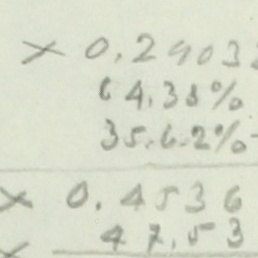 × 0.29032
64.38%
35.6.2%
× 0.4536
47.53
×